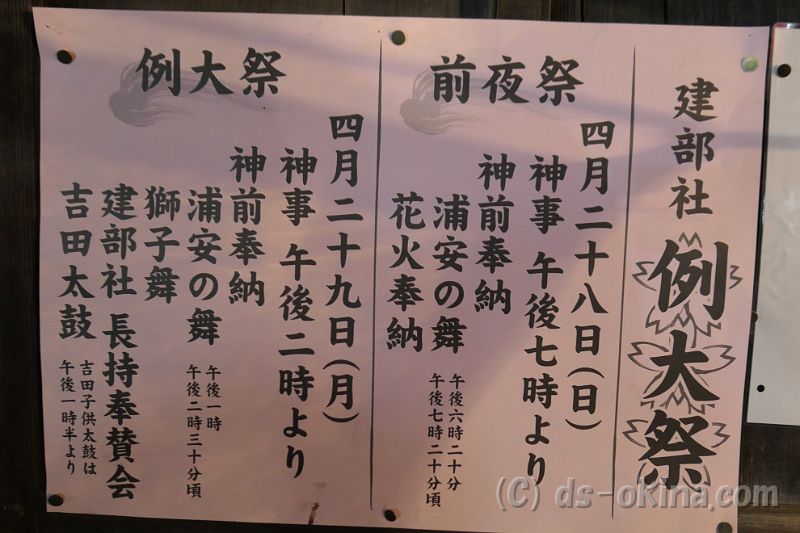 建部社 例大祭
前夜祭
四月二十八日(日)
神事 午後七時より
神前奉納
浦安の舞 午後六時二十分
午後七時二十分頃
花火奉納
例大祭
四月二十九日(月)
神事 午後二時より
神前奉納
浦安の舞 午後一時
午後二時三十分頃
獅子舞
建部社 長持奉賛会
吉田太鼓 吉田子供太鼓は
午後一時半より
(C) ds-okina.com